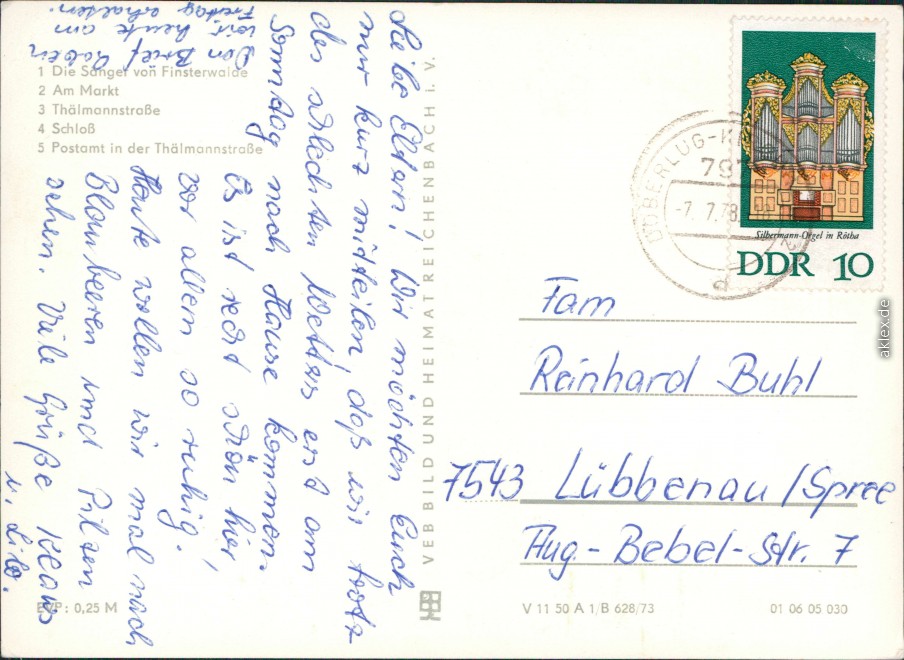 Liebe Eltern! Wir möchten Euch
nur kurz mitteilen, daß wir trotz
des schlechten Wetters erst am
Sonntag nach Hause kommen.
Es ist recht schön hier,
vor allem so ruhig.
Heute wollen wir mal nach
Blaubeeren und Pilzen
sehen. Viele Grüße Klaus
u. Lilo.
Den Brief haben
wir heute am
Freitag erhalten.
1 Die Sänger von Finsterwalde
2 Am Markt
3 Thälmannstraße
4 Schloß
5 Postamt in der Thälmannstraße
EVP: 0,25 M
VEB BILD UND HEIMAT REICHENBACH i. V.
DOBERLUG-K
797
-7. 7.78
d
Silbermann-Orgel in Rötha
DDR 10
Fam
Reinhard Buhl
7543 Lübbenau/Spree
Aug.-Bebel-Str. 7
V 11 50 A 1/B 628/73
01 06 05 030
aklex.de